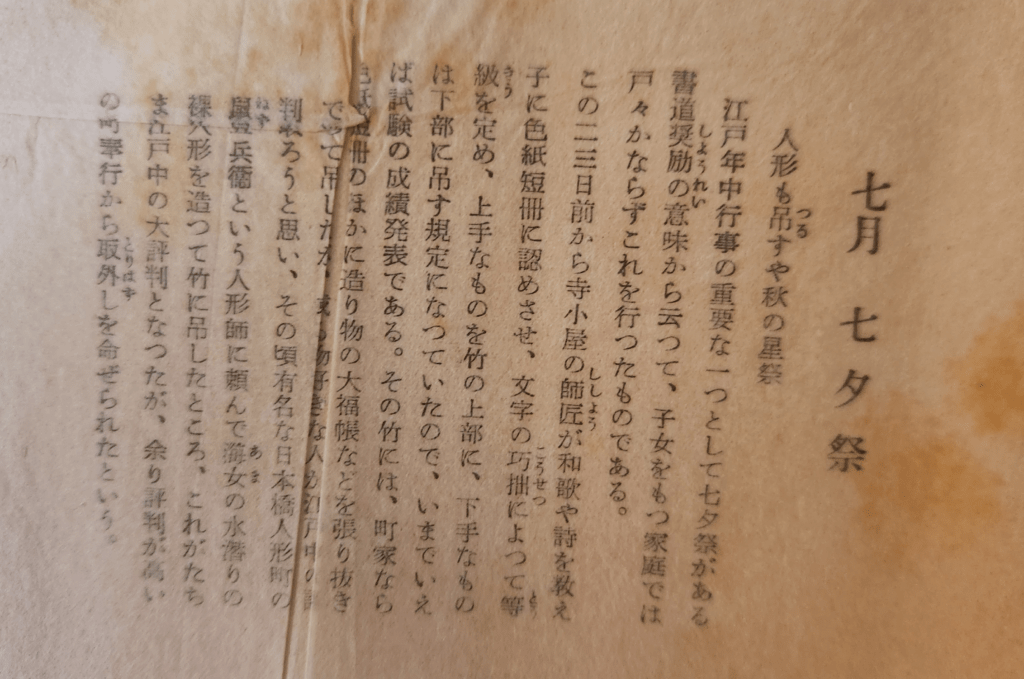 七月　七夕祭
人形も吊すや秋の星祭
江戸年中行事の重要な一つとして七夕祭がある
書道奨励の意味から云つて、子女をもつ家庭では
戸々かならずこれを行つたものである。
この二三日前から寺小屋の師匠が和歌や詩を教え
子に色紙短冊に認めさせ、文字の巧拙によつて等
級を定め、上手なものを竹の上部に、下手なもの
は下部に吊す規定になつていたので、いまでいえ
ば試験の成績発表である。その竹には、町家なら
色紙短冊のほかに造り物の大福帳などを張り抜き
でやて吊したが、或る物好きな人が江戸中の評
判取ろうと思い、その頃有名な日本橋人形町の
鼠屋兵衞という人形師に頼んで海女の水潜りの
裸人形を造つて竹に吊したところ、これがたち
ま江戸中の大評判となつたが、余り評判が高い
の町奉行から取外しを命ぜられたという。